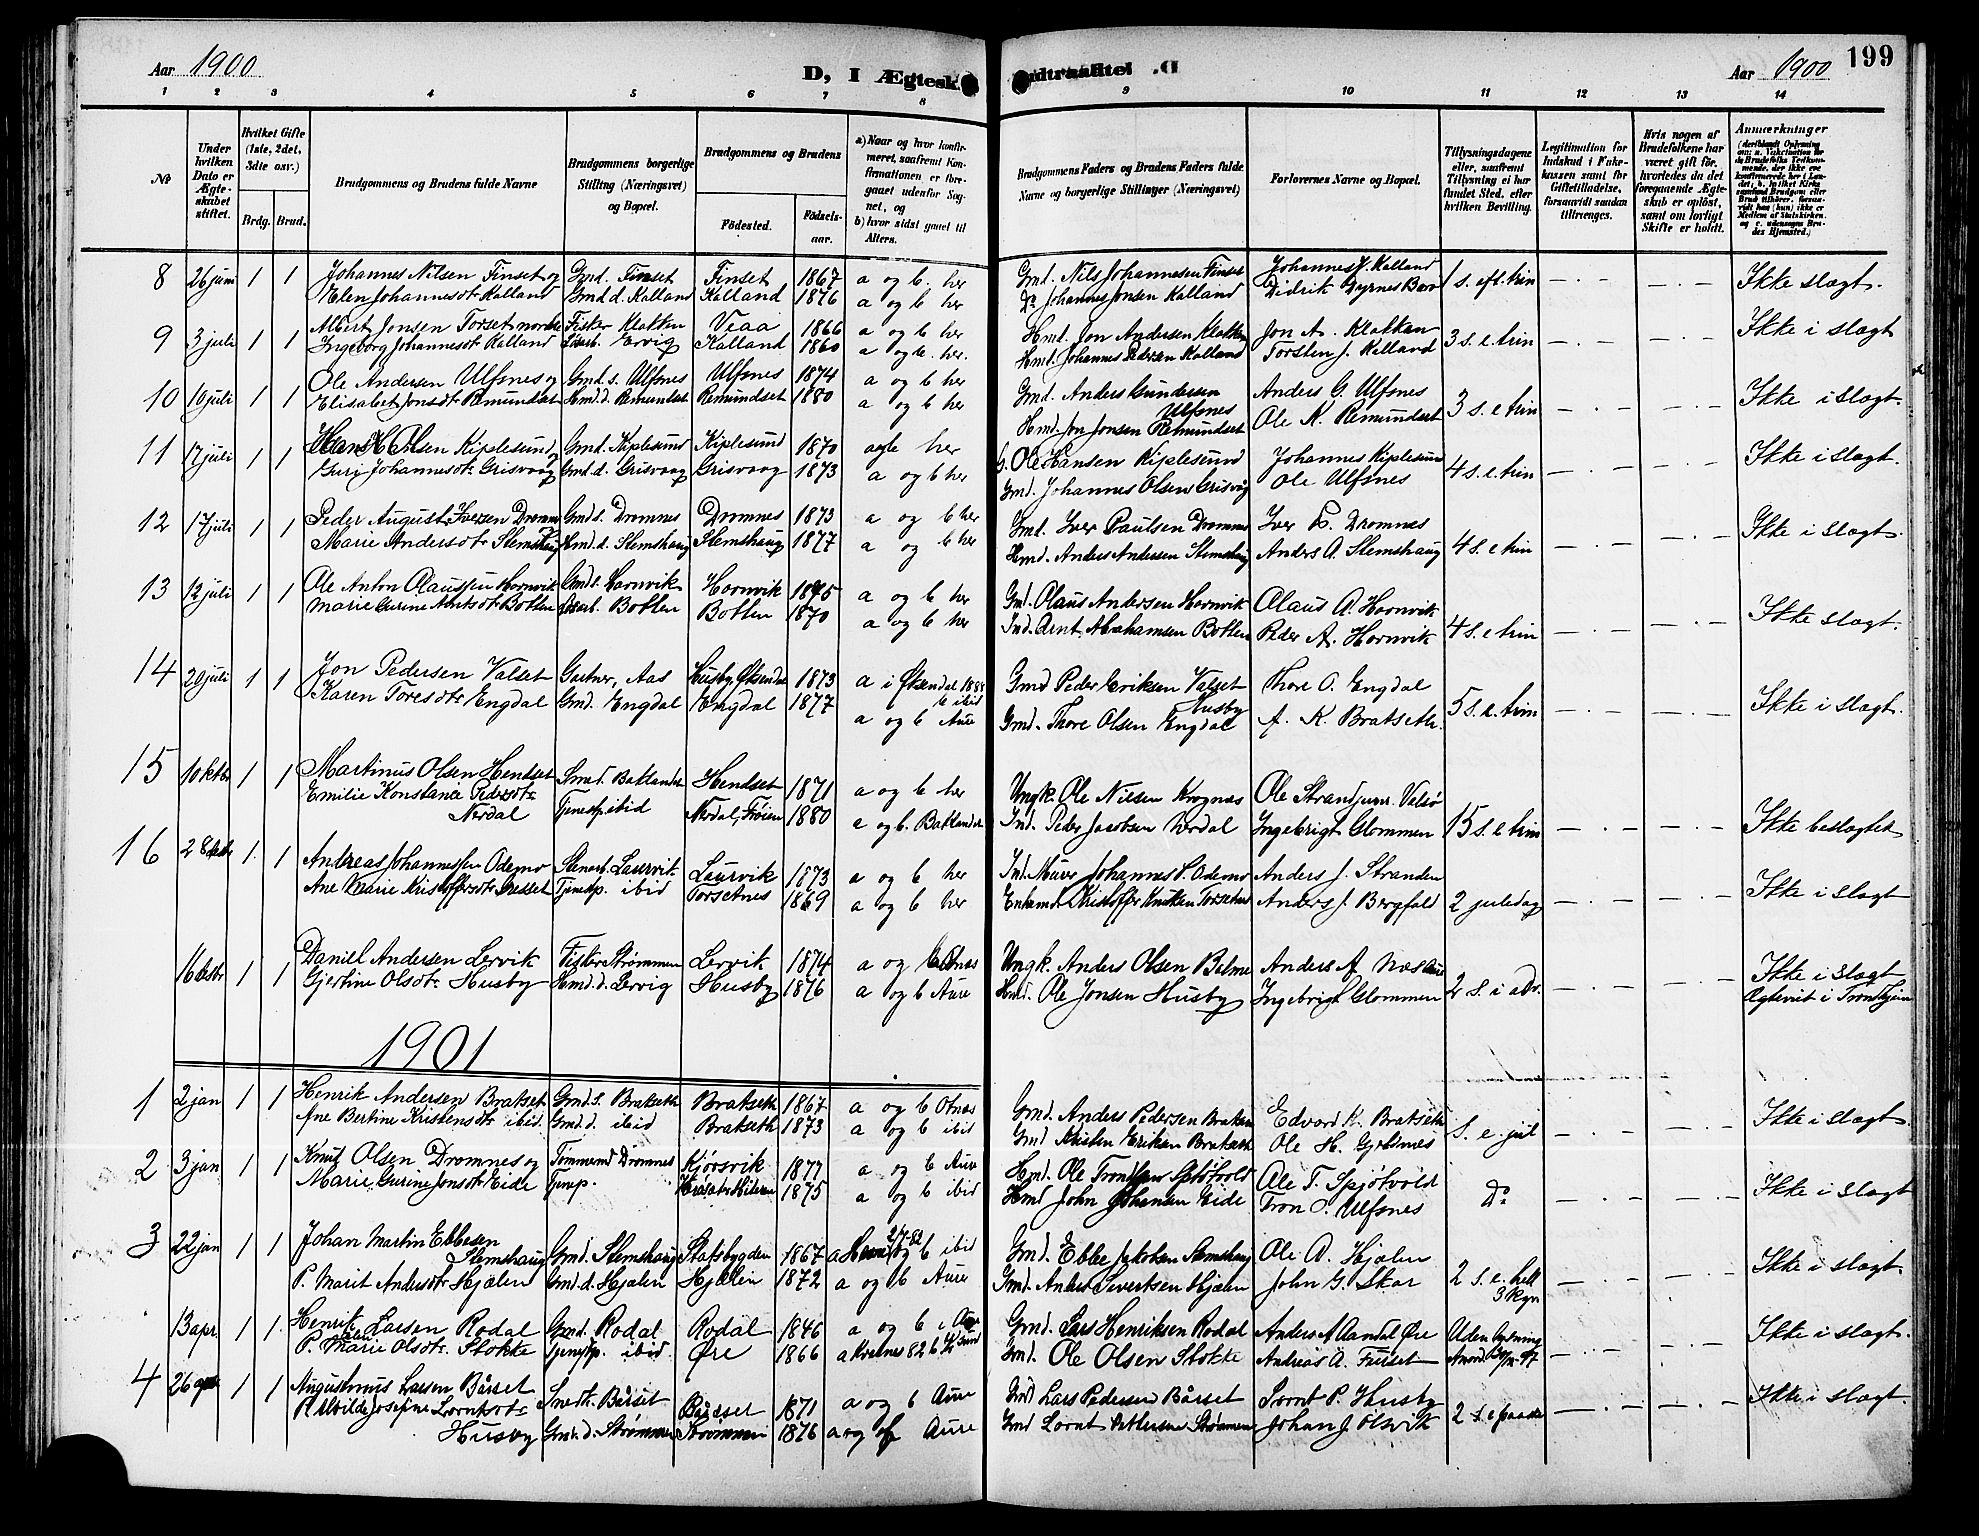 Aar 1900
D, I Ægtesk
Aar 1900
199
1 2 3 4 5 6 7 8 9 10 11 12 13 14
№
Under hvilken Dato er Ægteskabet stiftet.
Hvilket Gifte (1ste, 2det, 3die osv.)
Brdg. Brud.
Brudgommens og Brudens fulde Navne
Brudgommens borgerlige Stilling (Næringsvei) og Bopæl.
Brudgommens og Brudens
Födested. Födselsaar.
a) Naar og hvor konfirmeret, saafremt Konfirmationen er foregaaet udenfor Sognet, og
b) hvor sidst gaaet til Alters.
Brudgommens Faders og Brudens Faders fulde Navne og borgerlige Stillinger (Næringsvei)
Forlovernes Navne og Bopæl.
Tillysningsdagene eller, saafremt Tillysning ei har fundet Sted, efter hvilken Bevilling.
Legitimation for Indskud i Enkekassen samt for Giftetilladelse, forsaavidt saadan tiltrænges.
Hvis nogen af Brudefolkene har været gift för, hvorledes da det foregaaende Ægteskab er oplöst, samt om lovligt Skifte er holdt.
Anmærkninger
8 26 juni 1 1 Johannes Nilsen Finset og Gmd. Finset Finset 1867 a og b. her Gmd. Nils Johannesen Finset Johannes J. Kalland 1 s. eft. trin Ikke slægt.
Elen Johannesdt Kalland Gmd.d. Kalland Kalland 1876 a og b her Do Johannes Jonsen Kalland Didrik
9 3 juli 1 1 Albert Jonsen Torset Fisker Klakken Veaa 1866 a og b her Hmd. Jon Andersen Klakken Jon A. Klakken 3 s. e. trin Ikke i slægt
Ingeborg Johannesdt Kalland Ervig Kalland 1860 a og b. her. Hmd. Johannes Pedersen Kalland Torsten J. Kalland
10 10 juli 1 1 Ole Andersen Ulfsnes og Gmd. s. Ulfsnes Ulfsnes 1874 a og b her Gmd. Anders Gundersen Ulfsnes Anders G. Ulfsnes 3 s. e trin Ikke i slægt.
Elisabet Jonsdt Remundset Hmd.d. Remundset Remundset 1880 a og b her Hmd. Jon Jonsen Remundset Ole K. Remundset
11 17 juli 1 1 Hans Olsen Kiplesund og Gmd. Kiplesund Kiplesund 1870 her Ole Hansen Kiplesund Johannes Kiplesund 4 s. e. trin Ikke i slægt.
Guri Johannesdt. Grisvaag Gmd.d. Grisvaag Grisvaag 1873 a og b her Gmd. Johannes Olsen Grisvåg Ole Ulfsnes
12 17 juli 1 1 Peder August Iversen Dromnes Gmd s. Dromnes Dromnes 1873 a og b her Gmd. Iver Paulsen Dromnes Iver P. Dromnes 4 s. e trin Ikke i slægt.
Marie Andersdt. Slemshaug Hmd.d. Slemshaug Slemshaug 1877 a og b her Hmd. Anders Andersen Slemshaug Anders A. Slemshaug
13 12 juli 1 1 Ole Anton Olaussen Hornvik Gmd s. Hornvik Hornvik 18 5 a og b her Gmd. Olaus Andersen Hornvik Olaus A. Hornvik 4 s. e trin Ikke slægt.
Marie Gurine Arntsdt Botten Botten Botten 1870 a og b her Ind. Arnt Abrahamsen Botten Peder A. Hornvik
14 20 juli 1 1 Jon Pedersen Valset Gartner, Aas Husby, Øksendal 1873 a i Øksendal 1888 b ibid Gmd Peder Eriksen Valset Husby Thore O. Engdal 5 s. e. trin Ikke i slægt.
Karen Toresdt. Engdal Gmd. Engdal Engdal 1877 a og b Aure Gmd. Thore Olsen Engdal A. K. Bratseth.
15 10 ktbr 1 1 Martinus Olsen Hendset Smed. Baklandet Hendset 1871 a og b her Ungk. Ole Nilsen Krognæs Ole Strand 15 s. e trin Ikke beslægtet
Emilie Konstance Pedersdt. Nerdal Tjenestp. ibid Nerdal, Frøien 1880 a og b. Baklandet Ind. Peder Jacobsen Nerdal Ingebrigt Glommen
16 28 1 1 Andreas Johannessen Odemo Stenarb. Laurvik Laurvik 1873 a og b her Ind. Murer Johannes S. Odemo Anders J. Stranden 2 juledag Ikke i slægt
Ane Marie Kristoffersdt Tjenestp. ibid Torsetnes 1869 a og b her Kristoffer Knutsen Torsetnes Anders J. Bergfald
16 1 1 Daniel Andersen Lervik Fisker Strømmen Lervik 1874 a og b Otnæs Ungk. Anders Olsen Belme Anders A. Næs Aure 2 s. i adv. Ikke i slægt
Gjertine Olsdt. Husby Hmd.d. Lervig Husby 1876 a og b Aure Hmd. Ole Jonsen Husby Ingebrigt Glommen Ægteviet i Trondhjem
1901
1 2 jan 1 1 Henrik Andersen Bratset Gmd s. Bratseth Bratseth 1867 a og b Otnæs Gmd. Anders Pedersen Edvard K. Bratseth s. e. jul Ikke i slægt.
Ane Bertine Kristensdt ibid Gmd.d. ibid Bratseth 1873 a og b ibid Gmd Kristen Eriksen Bratseth Ole H. Gjeldnes
2 3 jan 1 1 Knut Olsen Dromnes og Tømmermd Dromnes Kjörsvik 1877 a og b Aure Hmd. Ole Trondsen Spjøtvold Ole T. Spjötvold Do Ikke i slægt
Marie Gurine Jonsdt Eide Tjenestp. 1875 a og b ibid Hmd John Johansen Eide Tron P. Ulfsnes
3 22 jan 1 1 Johan Martin Ebbesen Slemshaug Gmd. Slemshaug Stadsbygden 1867 b ibid Gmd. Ebbe Jakobsen Slemshaug Ole A. Hjælen 2 s. e. hell 3 kgr Ikke i slægt.
P. Marit Andersdt Hjælen Gmd.d. Hjælen Hjælen 1872 a og b Aure Gmd. Anders Sivertsen Hjælen John G. Skar
13 apr. 1 1 Henrik Larsen Rodal Gmd. Rodal Rodal 1846 a og b i Aure Gmd. Lars Henriksen Rodal Anders A Aandal Øre Uden lysning Ikke i slægt.
P. Marie Olsdt. Stokke Tjenestp. ibid Øre 1866 a Kvernes 82 b Kr Sund Gmd. Ole Olsen Stokke Andreas A. Fuset
4 26 apr 1 1 Augustinus Larsen Bårset Bårset Bårdset 1871 a og b Aure Gmd Lars Pedersen Bårset Lornt P. Husby 2 s. e paaske Ikke i slægt.
P. Alvilde Josefine Lorntsdt. Husby Gmd.d. Strømmen Strømmen 1876 a og b Aure Gmd Lornt Pettersen Strømmen Johan J. Olsvik